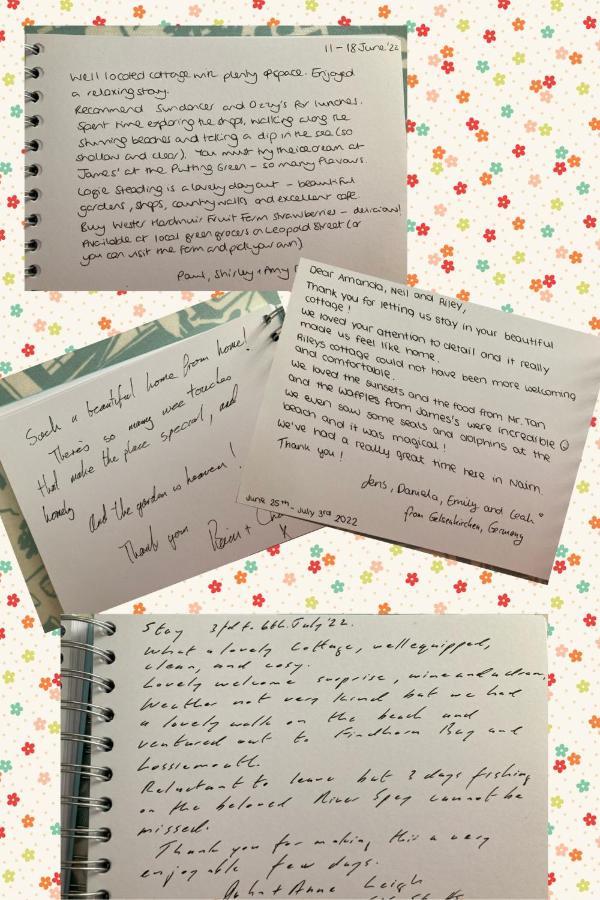 11 - 18 June '22
Well located cottage with plenty of space. Enjoyed
a relaxing stay.
Recommend Sundancer and Ozzy's for lunches.
Spent time exploring the shops, walking along the
stunning beaches and taking a dip in the sea (so
shallow and clear). You must try the icecream at
James' at the Putting Green - so many flavours.
Logie Steading is a lovely day out - beautiful
gardens, shops, country walks and excellent cafe.
Buy Wester Hardmuir Fruit Farm strawberries - delicious!
Available at local green grocers on Leopold Street (or
you can visit the farm and pick your own)
Paul, Shirley + Amy
Dear Amanda, Neil and Riley,
Thank you for letting us stay in your beautiful
cottage!
We loved your attention to detail and it really
made us feel like home.
Rileys cottage could not have been more welcoming
and comfortable.
We loved the sunsets and the food from Mr. Tan
and the waffles from James's were incredible ☺
We even saw some seals and dolphins at the
beach and it was magical!
We've had a really great time here in Nairn.
Thank you!
Jens, Daniela, Emily and Leah
from Gelsenkirchen, Germany
June 25th - July 3rd 2022
Such a beautiful home from home!
There's so many wee touches
that make the place special, and
homely and the garden is heaven!
Thank you
x
Stay 3rd to 6th July '22.
What a lovely cottage, well equipped,
clean, and cosy.
Lovely welcome surprise, wine and a dram,
Weather not very kind but we had
a lovely walk on the beach and
ventured out to Findhorn Bay and
Lossiemouth.
Reluctant to leave but 3 days fishing
on the beloved River Spey cannot be
missed.
Thank you for making this a very
enjoyable few days.
John + Anne Leigh